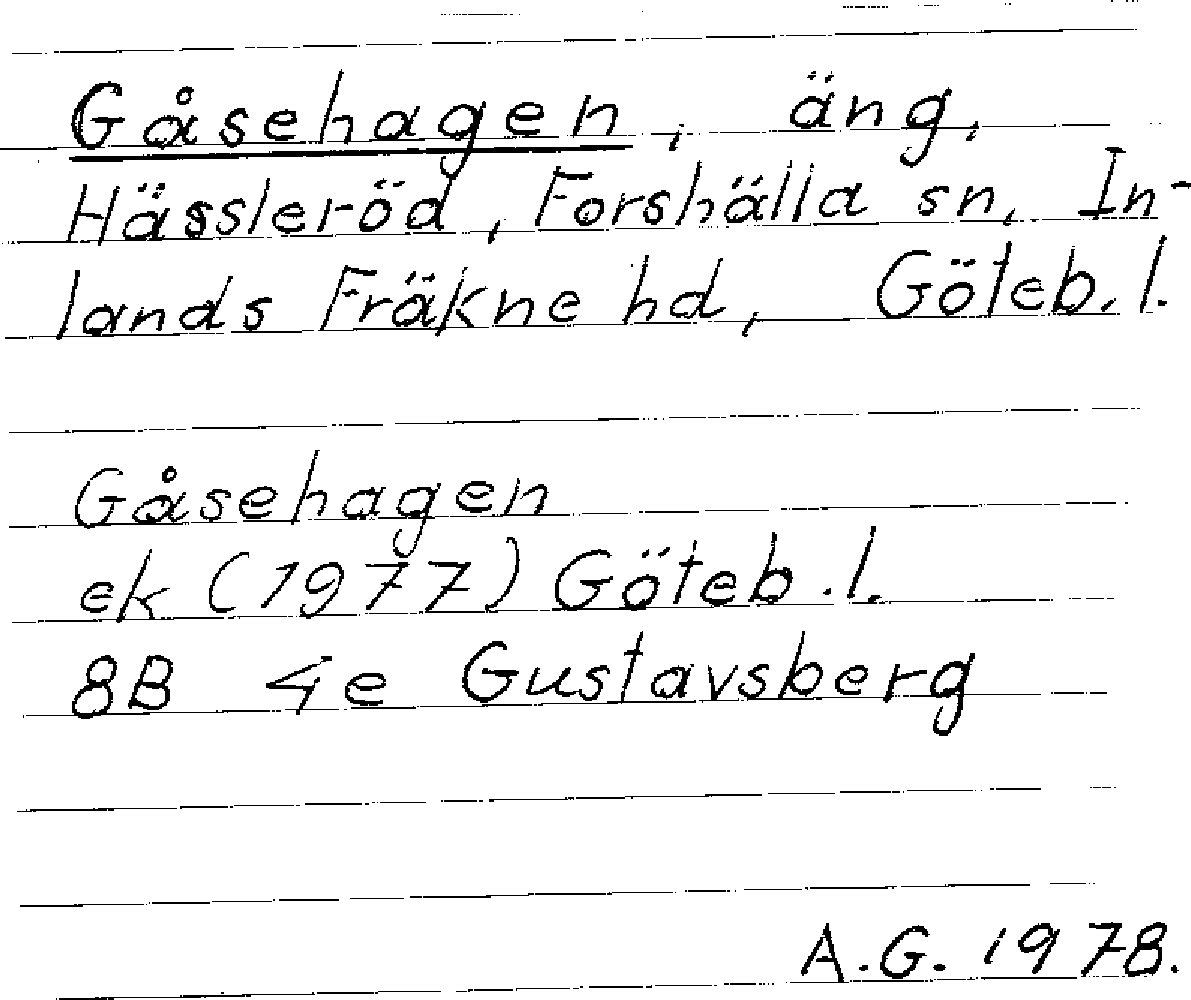 Gåsehagen, äng,
Hässleröd, Forshälla sn, In-
lands Fräkne hd, Göteb. l.
Gåsehagen
ek (1977) Göteb. l.
8B 4e Gustavsberg
A.G. 1978.